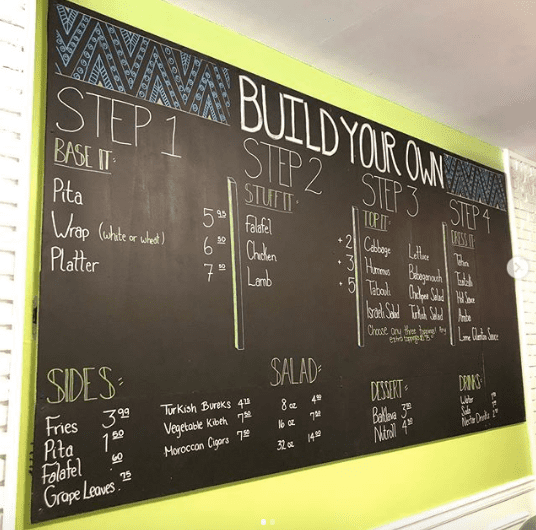 BUILD YOUR OWN
STEP 1
BASE IT:
Pita 5 95
Wrap (white or wheat) 6 50
Platter 7 50
STEP 2
STUFF IT:
Falafel +2
Chicken +3
Lamb +5
STEP 3
TOP IT:
Cabbage Lettuce
Hummus Babaganoush
Tabouli Chickpea Salad
Israeli Salad Turkish Salad
Choose any three toppings! Any
extra toppings
STEP 4
DRESS IT:
Tahini
Tzatziki
Hot Sauce
Amba
Lime Cilantro Sauce
SIDES:
Fries 3 99
Pita 1 50
Falafel .60
Grape Leaves .75
Turkish Bureks 4 75
Vegetable Kibeh 7 50
Moroccan Cigars 7 50
SALAD:
8 oz 4
16 oz 7
32 oz 14
DESSERT:
Baklava 3
Nutroll 4
DRINKS:
Water
Soda
Nectar Drinks